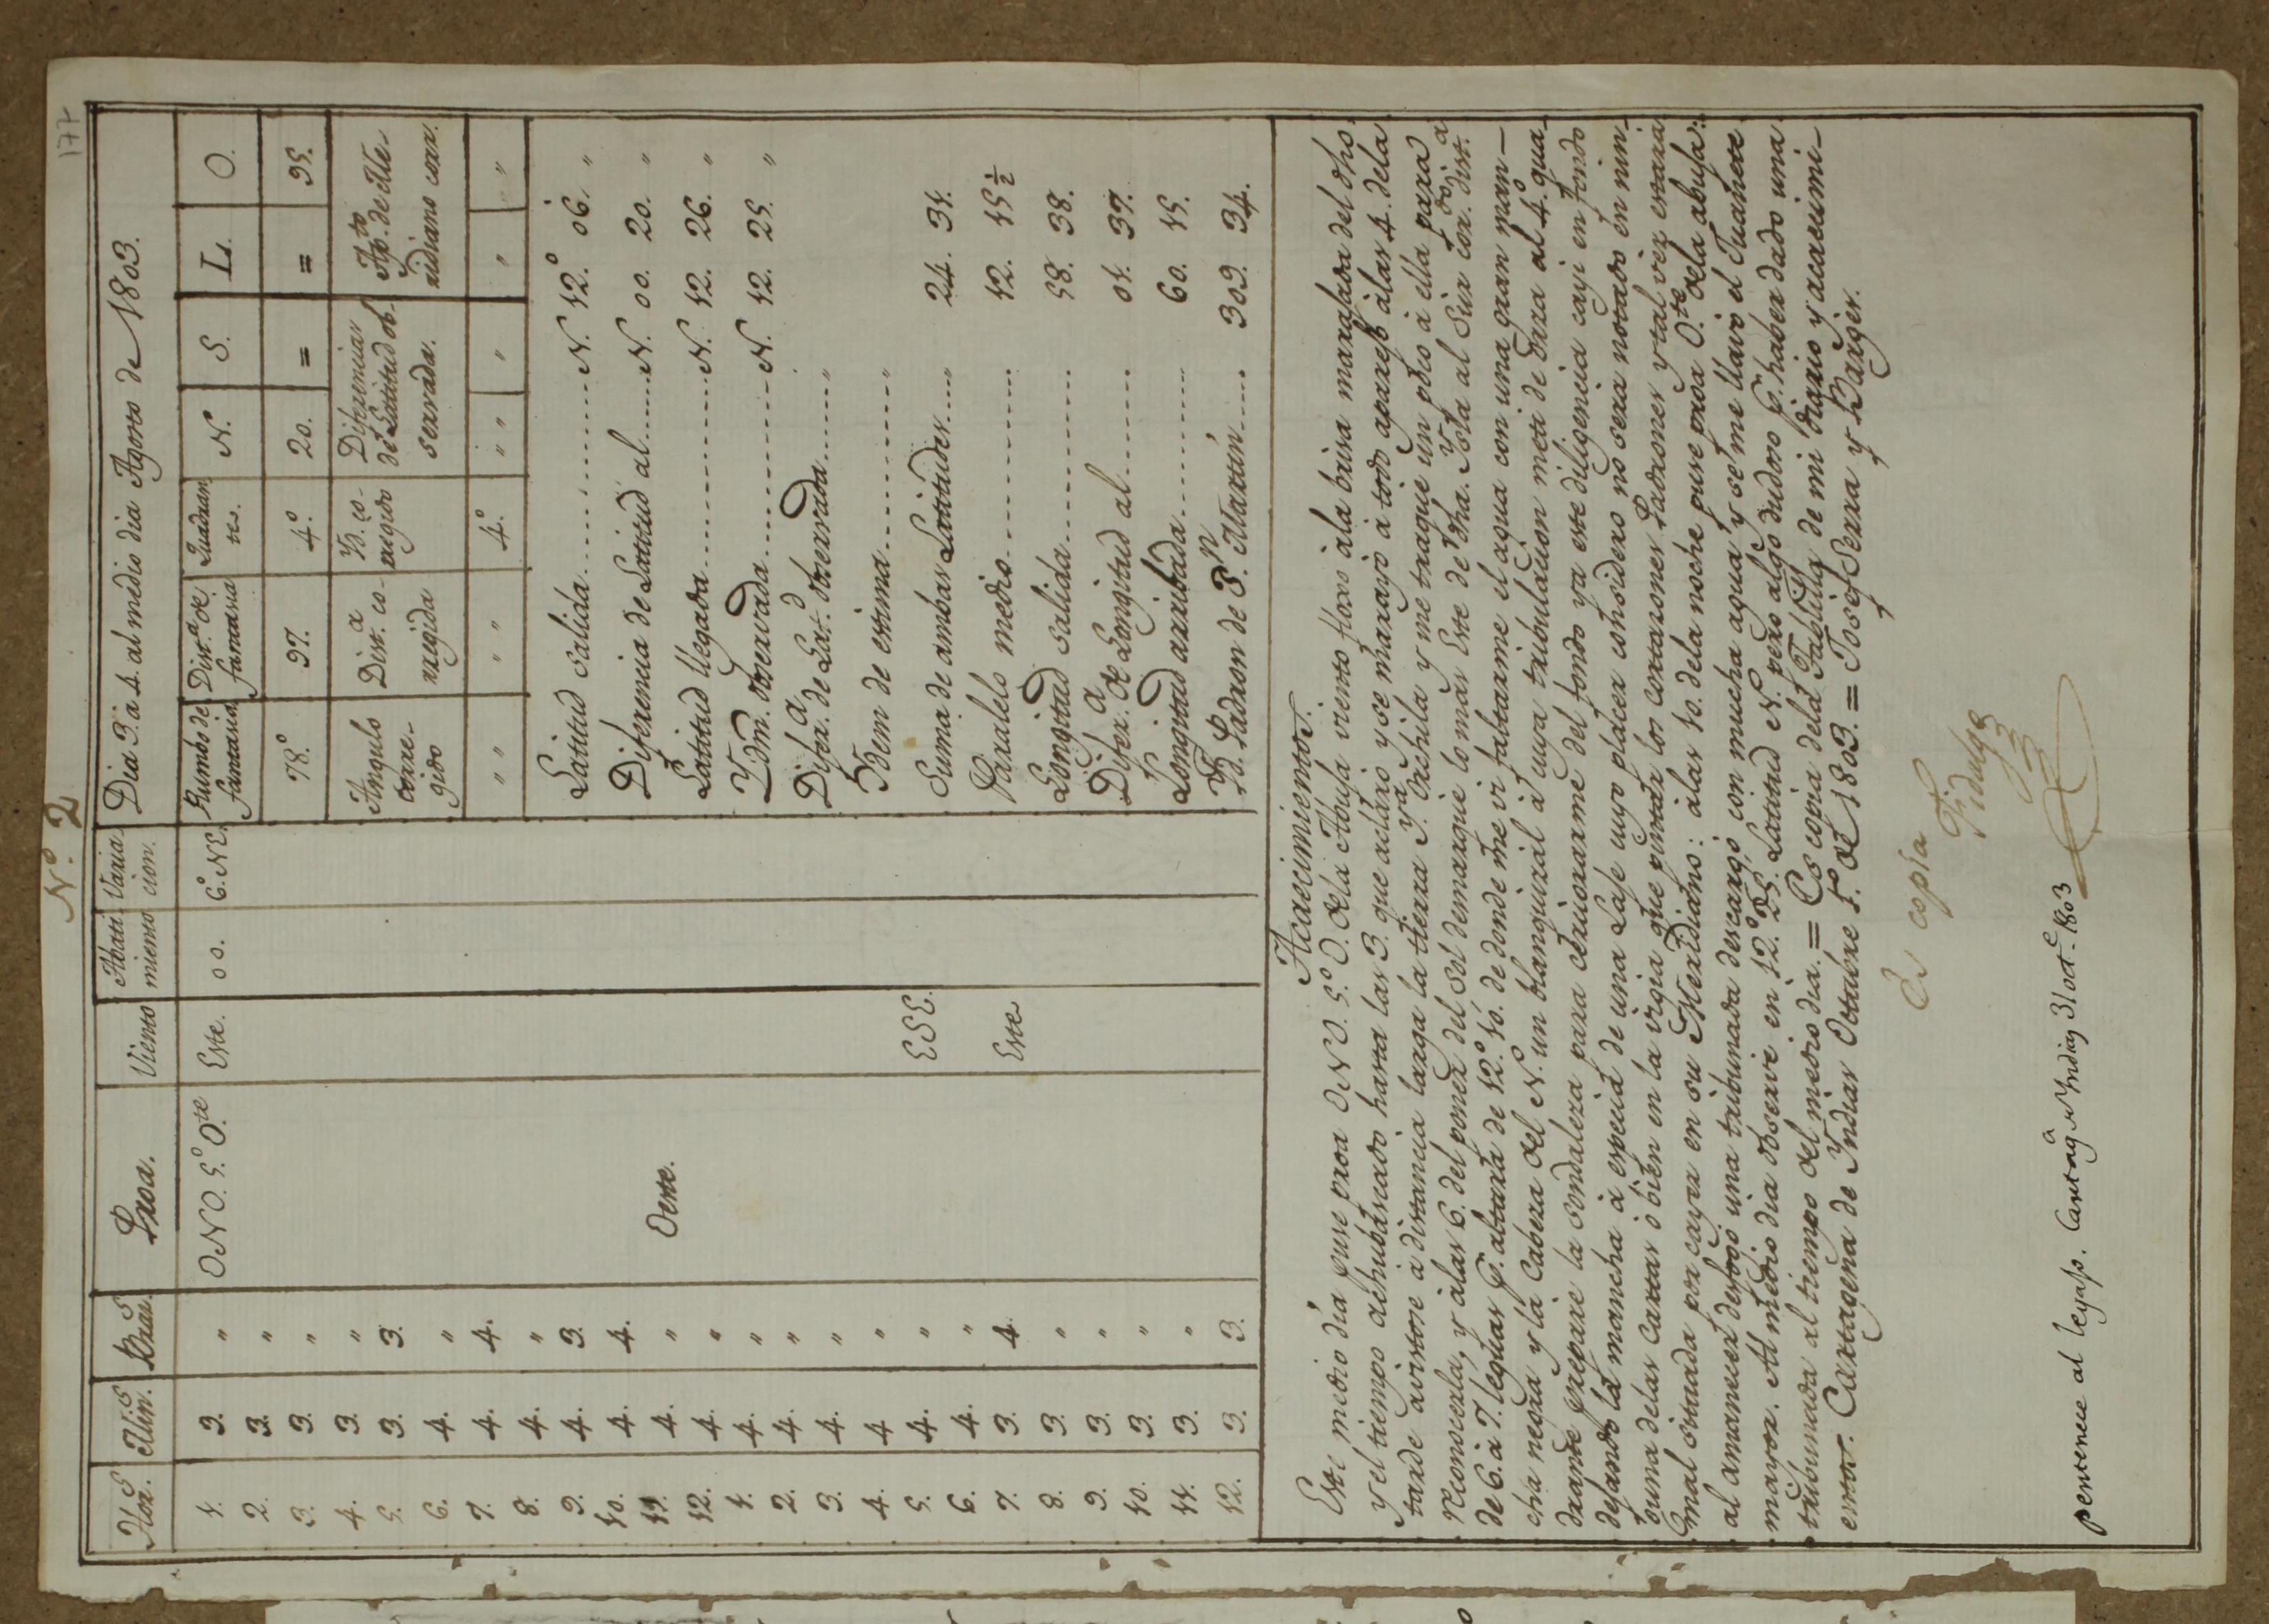 177
N.º 2
Hor.s Min.s Braz.s Proa. Viento Abati miento Varia cion. Dia 3. à 4. al medio dia Agosto de 1803.
1. 3. " ONO. 5.º O.te Este. 00. 6.º NE.
2. 3. "
3. 3. "
4. 3. "
5. 3. 3.
6. 4. "
7. 4. 4.
8. 4. "
9. 4. 3.
10. 4. 4. Oeste.
11. 4. "
12. 4. "
1. 4. "
2. 4. "
3. 4. "
4. 4 "
5. 4. " ESE.
6. 4. "
7. 3. 4. Este
8. 3. "
9. 3. "
10. 3. "
11. 3. "
12. 3. 3.
Rumbo de fantasia Dist.a de fantasia Quadran tes. N. S. L. O.
78.º 97. 4.º 20. = = 95.
Angulo corre- gido Dist.a co- rregida Yd. co- rregido Diferencias de Latitud ob- servada. Ap.to de Me- ridiano corr.
" " " " 4.º " " " " "
Latitud salida N. 12.º 06. "
Diferencia de Latitud al N. 00. 20. "
Latitud llegada N. 12. 26. "
Ydm. observada N. 12. 25. "
Difer.a de Lat.d observada "
Ydem de estima "
Suma de ambas Latitudes " 24. 31.
Paralelo medio 12. 15 ½
Longitud salida 58. 38.
Difer.a de Longitud al 01. 37.
Longitud arribada 60. 15.
Yd. Ladron de S.n Martin 303. 34.
Acaecimientos.
Este medio dia puse proa ONO. 5.º O. de la Abuja viento floxo à la brisa marejada del dho.
y el tiempo achubascado hasta las 3. que aclaro y se marajò à todo aparejo à las 4. de la
tarde avistose à distancia larga la tierra y.a S. Orchila y me traque un poco à ella para
reconocerla, y àlas 6. del poner del Sol demarqué lo mas Este de dha. Ysla al Sur cor.do dist.a
de 6. à 7. leguas p.r altura de 12.º 10. de donde me vi faltarme el agua con una gran man-
cha negra y la Cabeza del N. un blanquizal à cuya tribulacion meta de Bara al 4.º qua-
drante prepare la sondaleza para cerciorarme del fondo ya este diligencia cayi en fondo
dejando la mancha à especia de una Laje cuyo placer considero no sera notado en nin-
guna de las Cartas ò bien en la virgia que pintan los cortazones Ladrones y tal vez estaria
mal situada por cayer en su Meridiano: alas 10. de la noche puse proa O.te de la abuja:
al amanecer desfogo una tribunada descargò con mucha agua y se me llavò el Juanete
mayor. Al medio dia observe en 12.º 25. Latitud N. pero algo dudoso p.r haber dado una
tribunada al tiempo del medio dia. = Es copia de la Tablilla de mi diario y acaecimi-
entos. Cartagena de Yndias Octubre 1.º de 1803. = Josef Serra y Barger.
Es copia
Fidalgo
pertenece al legajo. Cartag.a de Yndias 31 oct.e 1803